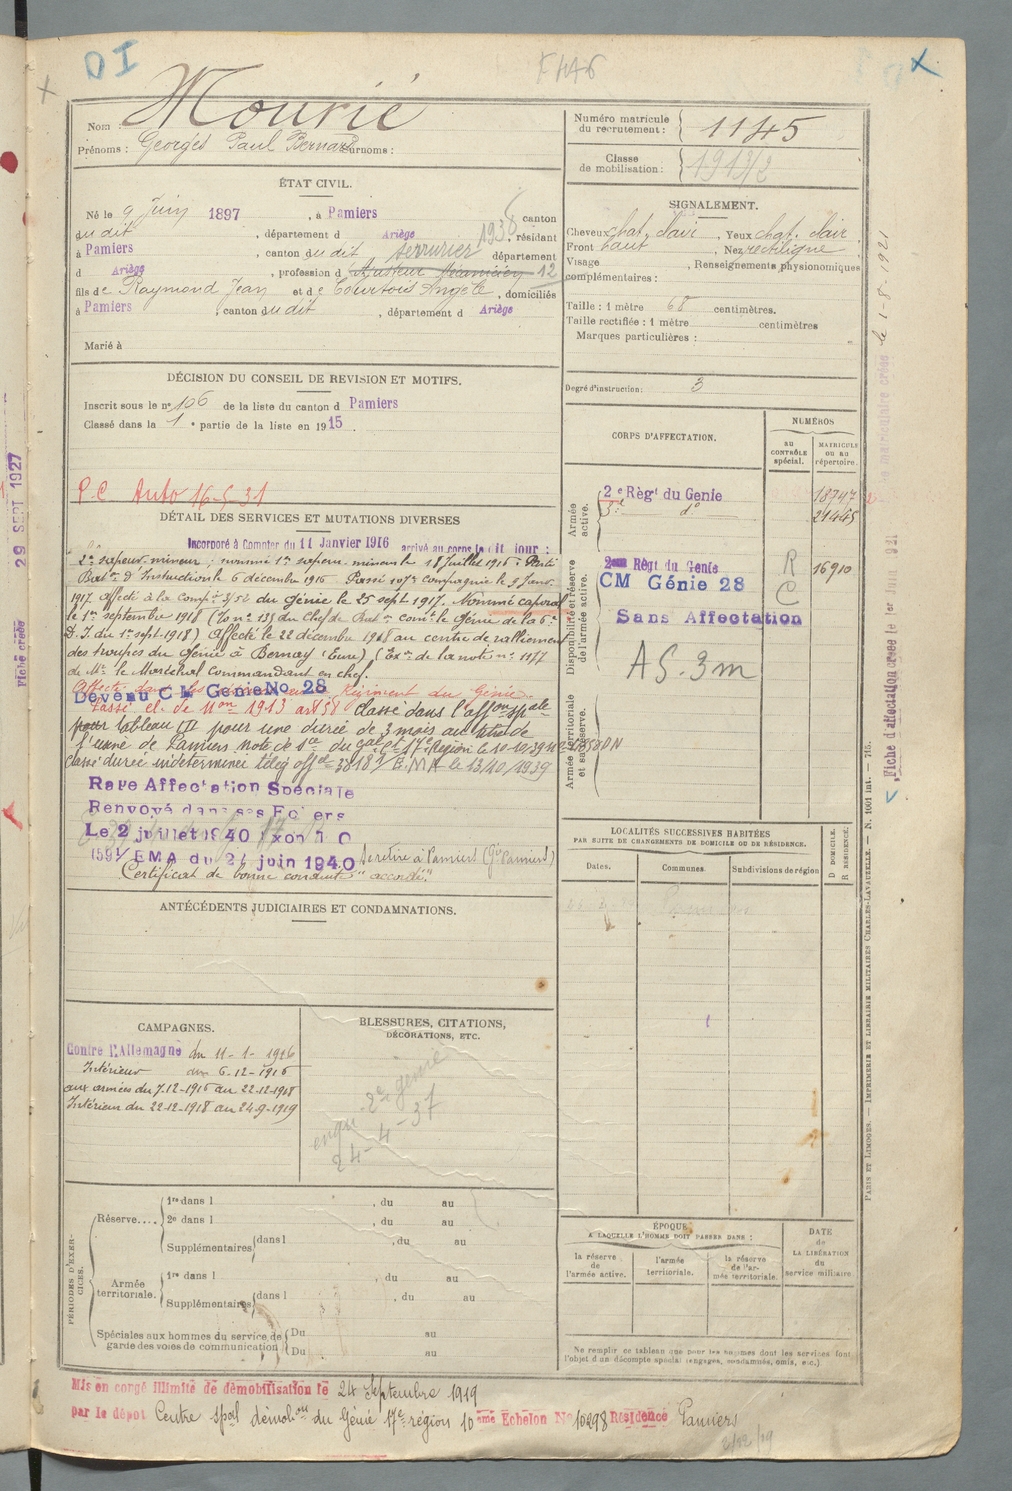 DI
1146
Nom : Mourié
Prénoms : Georges Paul Bernard Surnoms :
Numéro matricule du recrutement : 1145
Classe de mobilisation : 1913/2
ÉTAT CIVIL.
Né le 9 Juin 1897, à Pamiers canton
dudit, département d Ariège 1938, résidant
à Pamiers, canton dudit serrurier département
d Ariège, profession d Ajusteur Mécanicien 12
fils de Raymond Jean et de Courtois Angèle, domiciliés
à Pamiers, canton dudit, département d Ariège
Marié à
SIGNALEMENT.
Cheveux chat. clair, Yeux chat. clair
Front haut, Nez rectiligne
Visage, Renseignements physionomiques
complémentaires :
Taille : 1 mètre 68 centimètres.
Taille rectifiée : 1 mètre centimètres
Marques particulières :
Degré d'instruction : 3
DÉCISION DU CONSEIL DE REVISION ET MOTIFS.
Inscrit sous le n° 106 de la liste du canton d Pamiers
Classé dans la 1e partie de la liste en 1915.
P.C. Auto 16-5-31
DÉTAIL DES SERVICES ET MUTATIONS DIVERSES
Incorporé à Compter du 11 Janvier 1916 arrivé au corps le dit jour :
2e sapeur-mineur, nommé 1er sapeur mineur le 18 Juillet 1916. Parti
Batn d'Instruction le 6 décembre 1916. Passé compagnie le 9 Janv.
1917. affecté à la Compie 3/52 du génie le 25 sept. 1917. Nommé caporal
le 1er septembre 1918 (Ton n° 135 du Chef de Batn comt le Génie de la 6e
D.I. du 1er sept. 1918) Affecté le 22 décembre 1918 au centre de ralliement
des troupes du Génie à Bernay (Eure) (Exon de la note n° 1177
de Mr le Maréchal commandant en chef.
Régiment du Génie.
Devenu C M Génie No 28
Passé cl. de mon 1913 art 58 Classé dans l'affon spale
pour tableau III pour une durée de 3 mois au titre de
l'usine de Pamiers. note de
classé durée indéterminée télég offel 3818 1/E.M.A. le 13/10/1939
Raye Affectation Spéciale
Renvoyé dans ses Foyers
Le 2 juillet 1940 Exon T O
1591/EMA du 24 juin 1940 se retire à Pamiers
Certificat de bonne conduite "accordé".
CORPS D'AFFECTATION.
NUMÉROS
au CONTRÔLE spécial.
MATRICULE ou au répertoire.
Armée active.
2e Règt du Genie 18747
3e do 21445
Disponibilité et réserve de l'armée active.
2eme Règt du Genie R 16910
CM Génie 28 C
Sans Affectation
AS. 3m
Armée territoriale et sa réserve.
LOCALITÉS SUCCESSIVES HABITÉES
PAR SUITE DE CHANGEMENTS DE DOMICILE OU DE RÉSIDENCE.
Dates.
Communes.
Subdivisions de région
D DOMICILE.
R RÉSIDENCE.
ANTÉCÉDENTS JUDICIAIRES ET CONDAMNATIONS.
CAMPAGNES.
Contre l'Allemagne du 11-1-1916
Intérieur au 6-12-1916
aux armées du 7-12-1916 au 22-12-1918
Intérieur du 22-12-1918 au 24-9-1919
BLESSURES, CITATIONS,
DÉCORATIONS, ETC.
2e génie
24-4-37
PÉRIODES D'EXERCICES.
Réserve....
1re dans l, du au
2e dans l, du au
Supplémentaires dans l, du au
Armée territoriale.
1re dans l, du au
Supplémentaires dans l, du au
Spéciales aux hommes du service de
garde des voies de communication
Du au
Du au
ÉPOQUE
A LAQUELLE L'HOMME DOIT PASSER DANS :
la réserve de l'armée active.
l'armée territoriale.
la réserve de l'armée territoriale.
DATE de LA LIBÉRATION du service militaire.
Ne remplir ce tableau que pour les hommes dont les services font
l'objet d'un décompte spécial (engagés, condamnés, omis, etc.)
Mis en congé illimité de démobilisation le 24 Septembre 1919
par le dépôt Centre spal démobon du Génie 17e région 10 eme Echelon No 10298 Résidence Pamiers
29 SEPT 1927
Fiche créée
matriculaire créée le 1-8-1921
Fiche d'affectation créée le 1er Juin 1921
PARIS ET LIMOGES. — IMPRIMERIE ET LIBRAIRIE MILITAIRES CHARLES-LAVAUZELLE. — N. 1001 int. — 715.